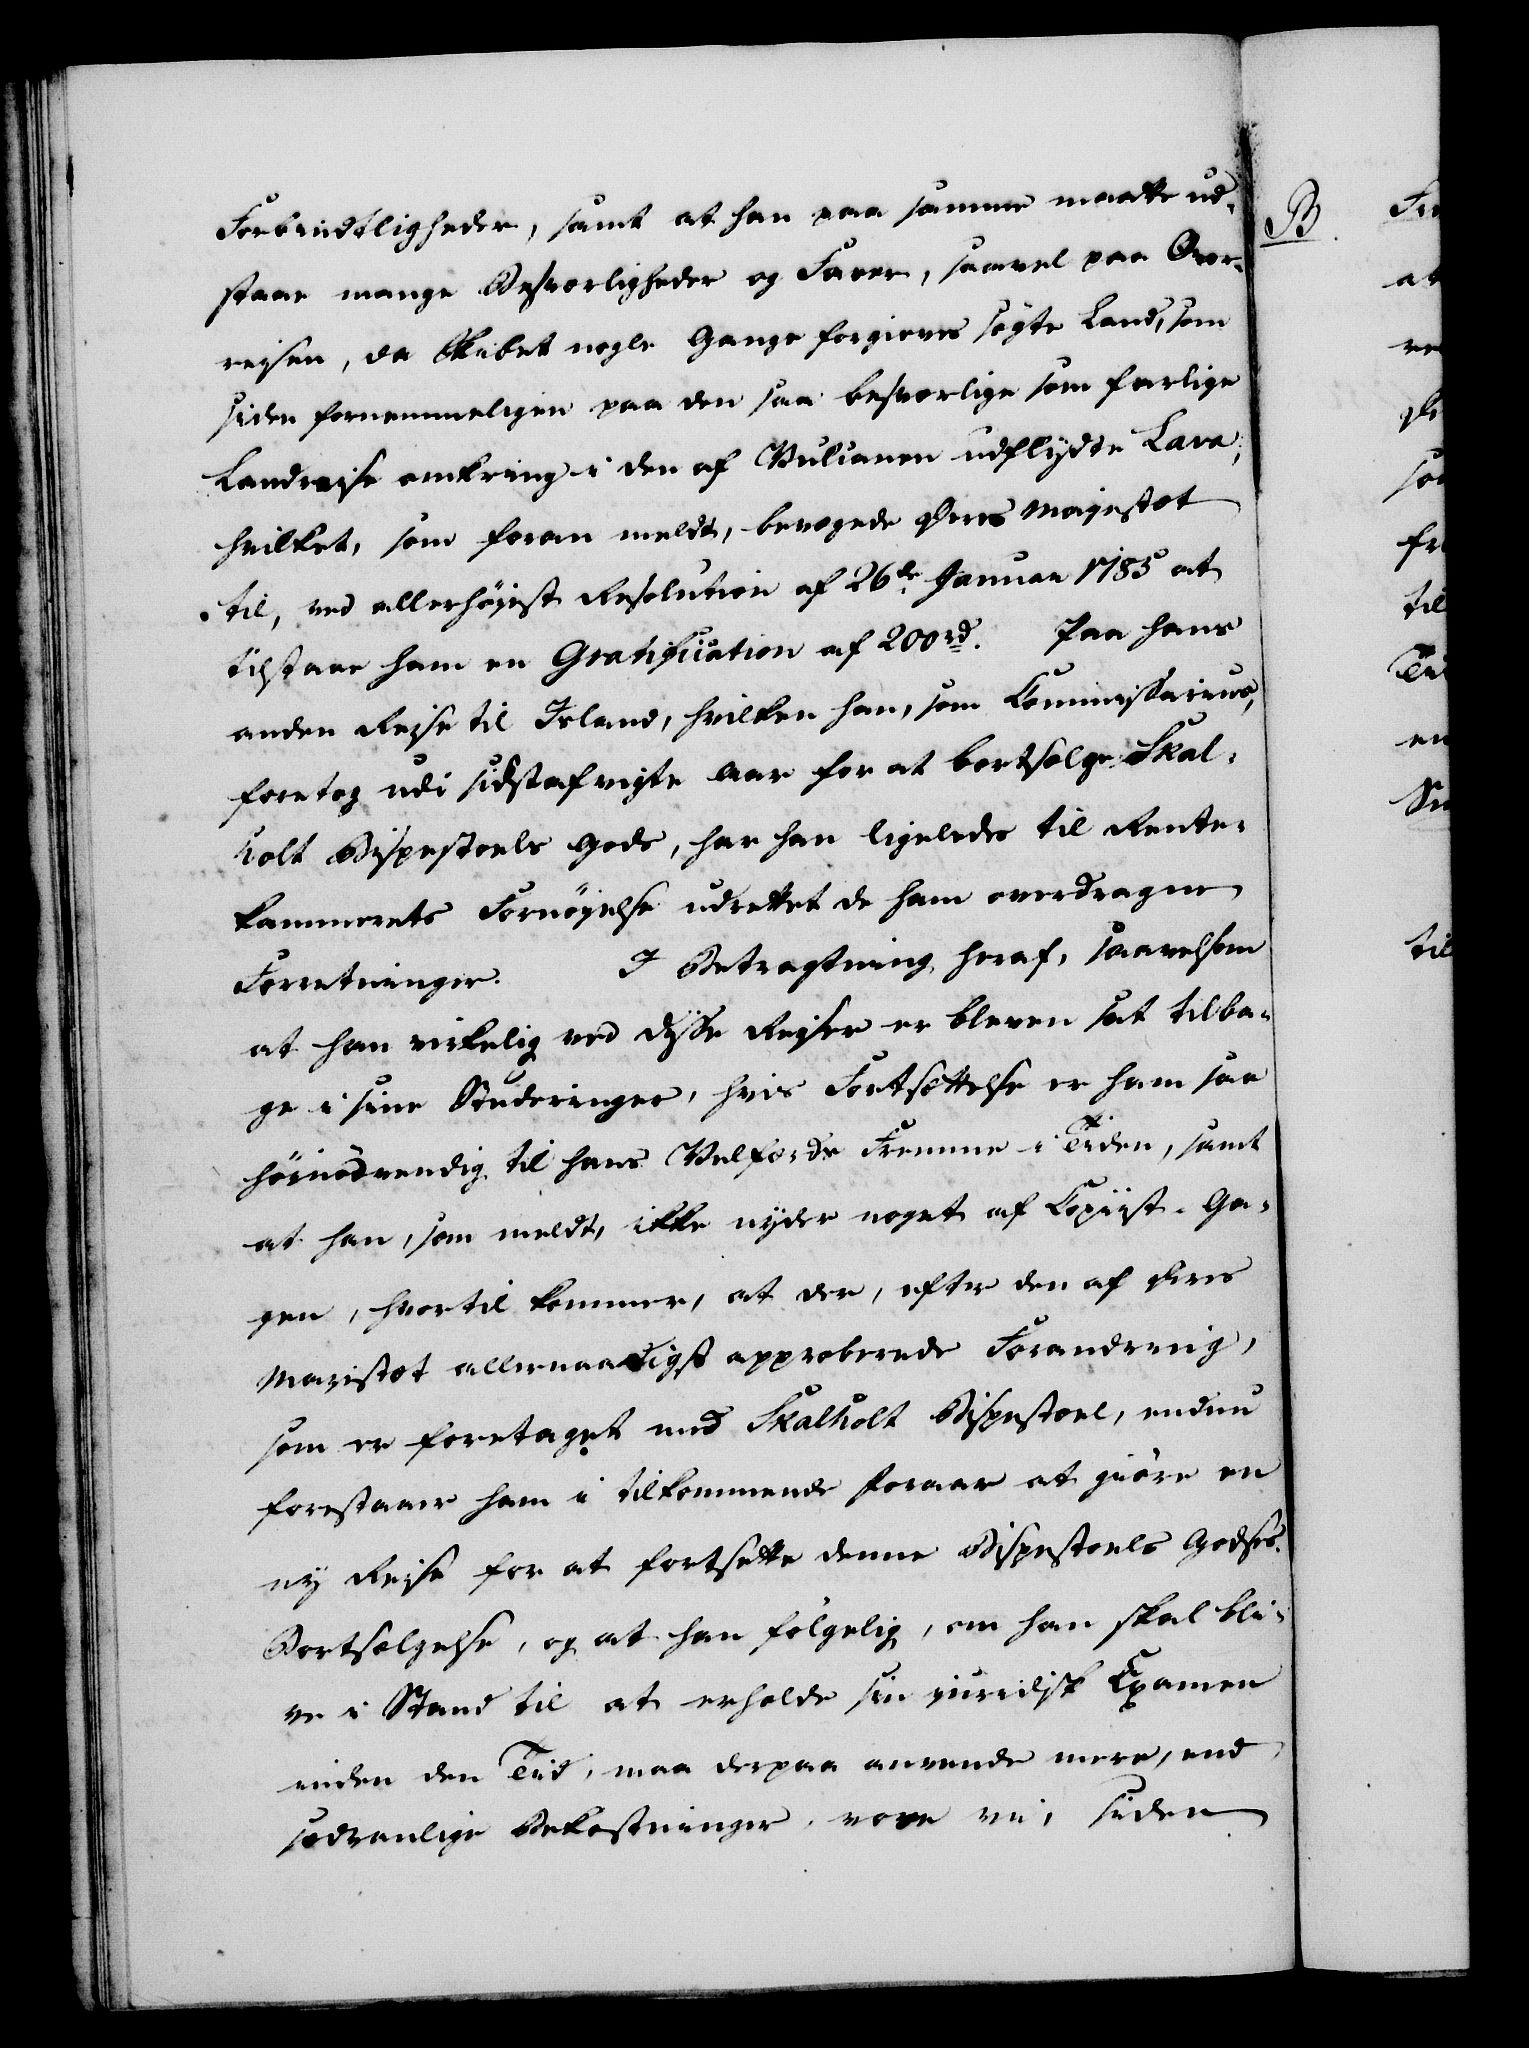 Forbindtligheder, samt at han paa samme maatte ud¬
staae mange Besværligheder og Farer, saavel paa Over¬
reisen, da Skibet nogle Gange forgieves søgte Land, som
siden fornemmeligen paa den saa besværlige som farlige
Landreise omkring i den af Vulcanen udflydte Lava,
hvilket, som foran meldt, bevægede Deres Majestæt
til, ved allerhøieste Resolution af 26de Januar 1785 at
tilstaae ham en Gratification af 200 rd. Paa hans
anden Reise til Island, hvilken han, som Commissarius,
foretog udi sidstafvigte Aar for at bortsælge Skal¬
holt Bispestoels Gods, har han ligeledes til Rente¬
kammerets Fornøyelse udrettet de ham overdragne
Forretninger. I Betragtning heraf, saavelsom
at han virkelig ved disse Reiser er bleven sat tilba¬
ge i sine Studeringer, hvis Fortsættelse er ham saa
høinødvendig til hans Velfærds Fremme i Tiden, samt
at han, som meldt, ikke nyder noget af Copiist-Ga¬
gen, hvortil kommer, at der, efter den af Deres
Majestæt allernaadigst approberede Forandring,
som er foretaget med Skalholt Bispestoel, endnu
forestaaer ham i tilkommende Foraar at giøre en
ny Reise for at fortsætte denne Bispestoels Godses
Bortsælgelse, og at han følgelig, om han skal bli¬
ve i Stand til at erholde sin juridisk Examen
inden den Tid, maa derpaa anvende mere, end
sædvanlige Bekostninger, vove vi, siden
B.
at
til
en
til